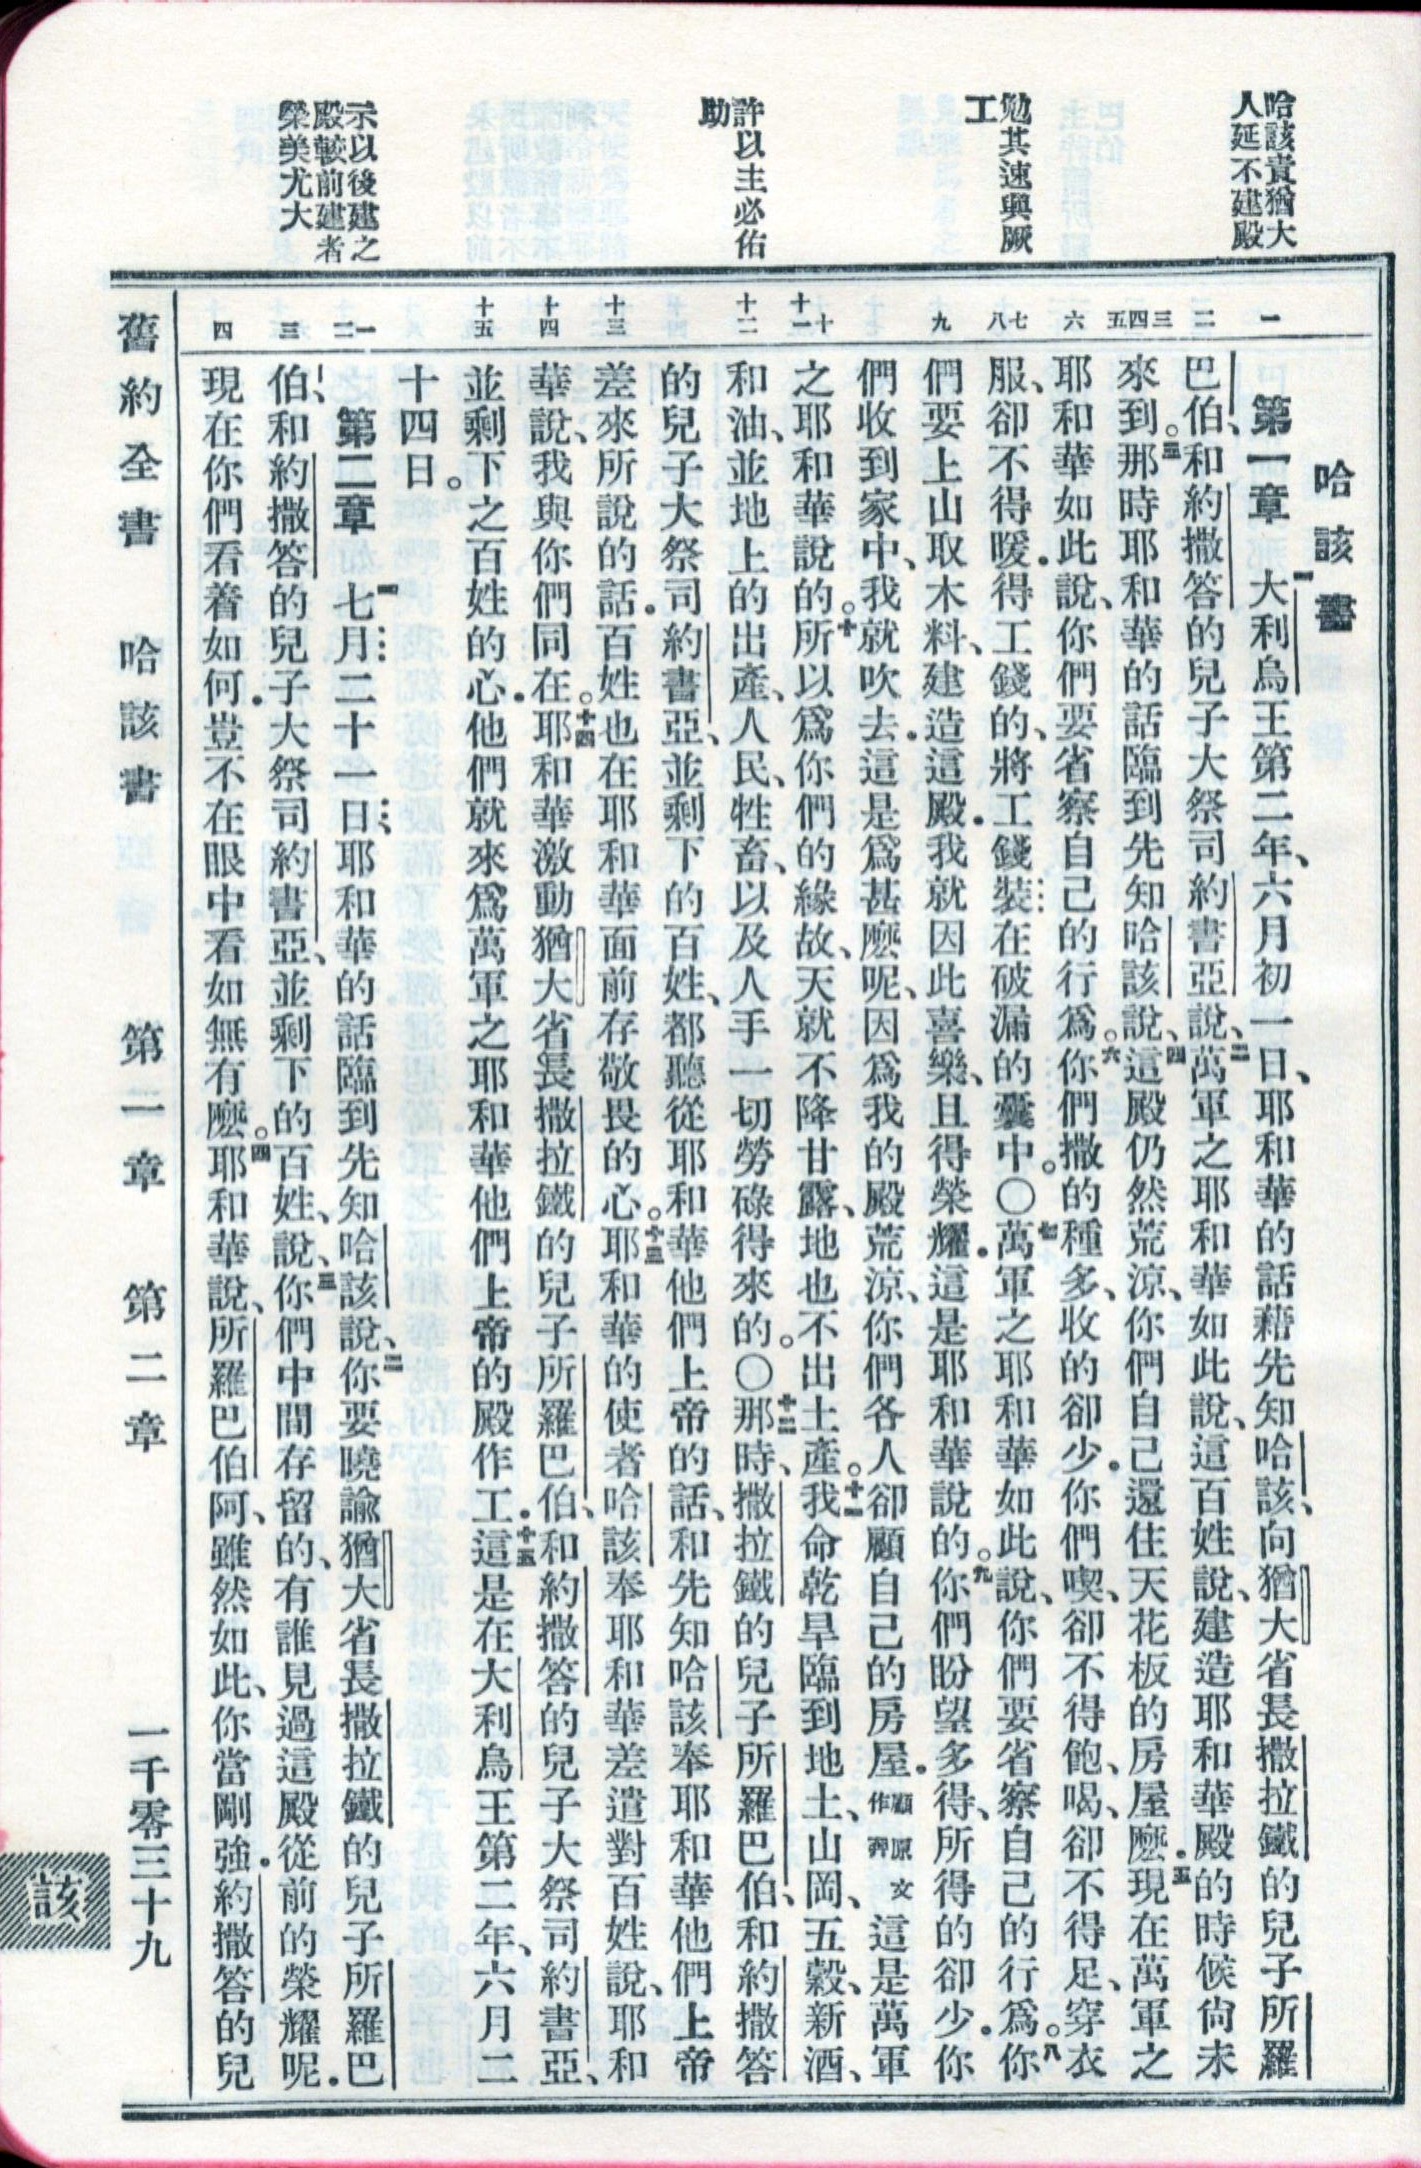 哈該責猶大
人延不建殿
勉其速興厥
工
許以主必佑
助
示以後建之
殿較前建者
榮美尤大
哈該書
一
二
三四五
六
七八
九
十十一
十二
十三
十四
十五
一二
三
四
第一章 一大利烏王第二年、六月初一日、耶和華的話藉先知哈該、向猶大省長撒拉鐵的兒子所羅
巴伯、和約撒答的兒子大祭司約書亞說、二萬軍之耶和華如此說、這百姓說、建造耶和華殿的時候尙未
來到。三那時耶和華的話臨到先知哈該說、四這殿仍然荒涼、你們自己還住天花板的房屋麽．五現在萬軍之
耶和華如此說、你們要省察自己的行爲。六你們撒的種多、收的卻少．你們喫、卻不得飽、喝、卻不得足、穿衣
服、卻不得暖．得工錢的、將工錢裝在破漏的囊中。〇七萬軍之耶和華如此說、你們要省察自己的行爲。八你
們要上山取木料、建造這殿．我就因此喜樂、且得榮耀．這是耶和華說的。九你們盼望多得、所得的卻少．你
們收到家中、我就吹去．這是爲甚麽呢、因爲我的殿荒涼、你們各人卻顧自己的房屋．顧原文作奔這是萬軍
之耶和華說的。十所以爲你們的緣故、天就不降甘露、地也不出土產。十一我命乾旱臨到地土、山岡、五穀、新酒、
和油、並地上的出產、人民、牲畜、以及人手一切勞碌得來的。〇十二那時、撒拉鐵的兒子所羅巴伯、和約撒答
的兒子大祭司約書亞、並剩下的百姓、都聽從耶和華他們上帝的話、和先知哈該奉耶和華他們上帝
差來所說的話．百姓也在耶和華面前存敬畏的心。十三耶和華的使者哈該奉耶和華差遣對百姓說、耶和
華說、我與你們同在。十四耶和華激動猶大省長撒拉鐵的兒子所羅巴伯、和約撒答的兒子大祭司約書亞、
並剩下之百姓的心．他們就來爲萬軍之耶和華他們上帝的殿作工．十五這是在大利烏王第二年、六月二
十四日。
第二章 一七月二十一日、耶和華的話臨到先知哈該說、二你要曉諭猶大省長撒拉鐵的兒子所羅巴
伯、和約撒答的兒子大祭司約書亞、並剩下的百姓、說、三你們中間存留的、有誰見過這殿從前的榮耀呢．
現在你們看着如何．豈不在眼中看如無有麽。四耶和華說、所羅巴伯阿、雖然如此、你當剛強．約撒答的兒
舊約全書 哈該書 第一章 第二章 一千零三十九
該